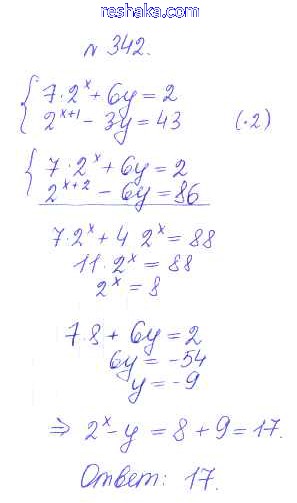 reshaka.com
N 342.
{ 7·2^x + 6y = 2
2^(x+1) - 3y = 43 (·2)
{ 7·2^x + 6y = 2
2^(x+2) - 6y = 86
7·2^x + 4 2^x = 88
11·2^x = 88
2^x = 8
7·8 + 6y = 2
6y = -54
y = -9
⇒ 2^x - y = 8 + 9 = 17.
Ответ: 17.